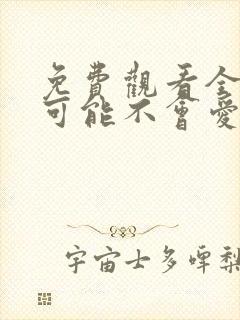 免費觀看全
可能不會愛
宇宙士多啤梨